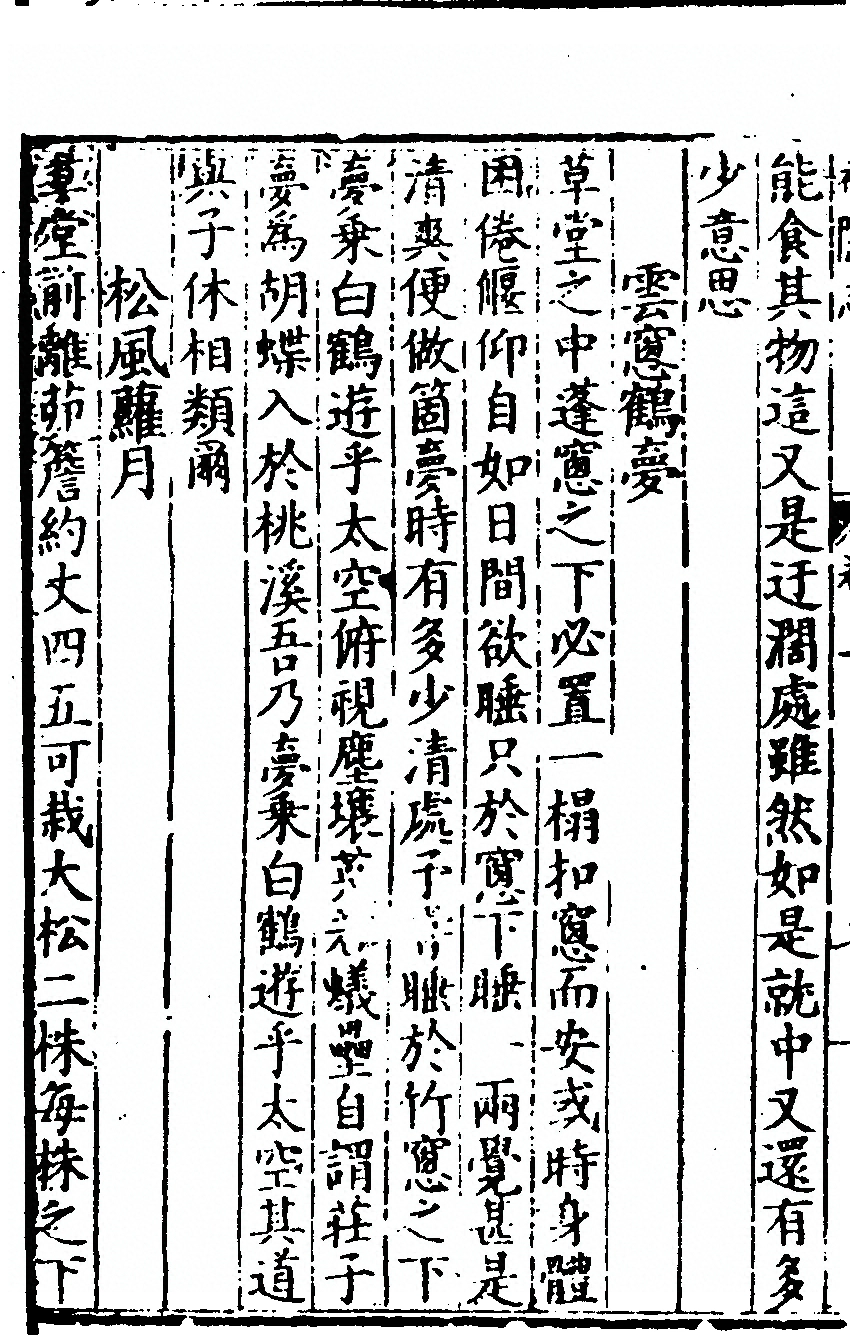 能食其物這又是迂濶處雖然如是就中又還有多
少意思
雲窓鶴夢
草堂之中蓬窓之下必置一榻扣窓而安或時身體
困倦偃仰自如日間欲睡只於窓下睡兩覺甚是
清爽便做箇夢時有多少清處予睡於竹窓之下
夢乗白鶴遊乎太空俯視塵壤蟻壘自謂莊子
夢為胡蝶入於桃溪吾乃夢乗白鶴遊乎太空其道
與子休相類爾
松風蘿月
草堂前離茆簷約丈四五可栽大松二株每株之下